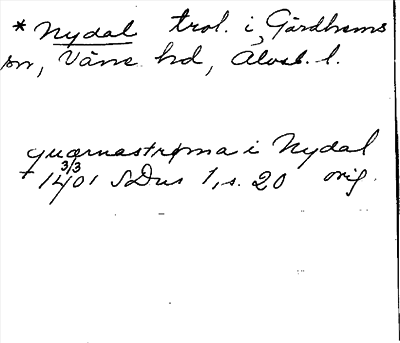 * Nydal trol. i, Gärdhems
sn, Väne hd, Älvsb. l.
quærnastrøma i Nydal
3/3
† 1401 SDns 1, s. 20 orig.